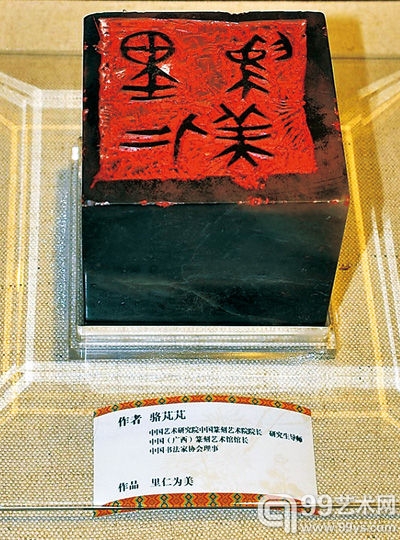 里仁
為美
作者 骆芃芃
中国艺术研究院中国篆刻艺术院院长 研究生导师
中国（广西）篆刻艺术馆馆长
中国书法家协会理事
作品 里仁为美
99艺术网
www.99ys.com